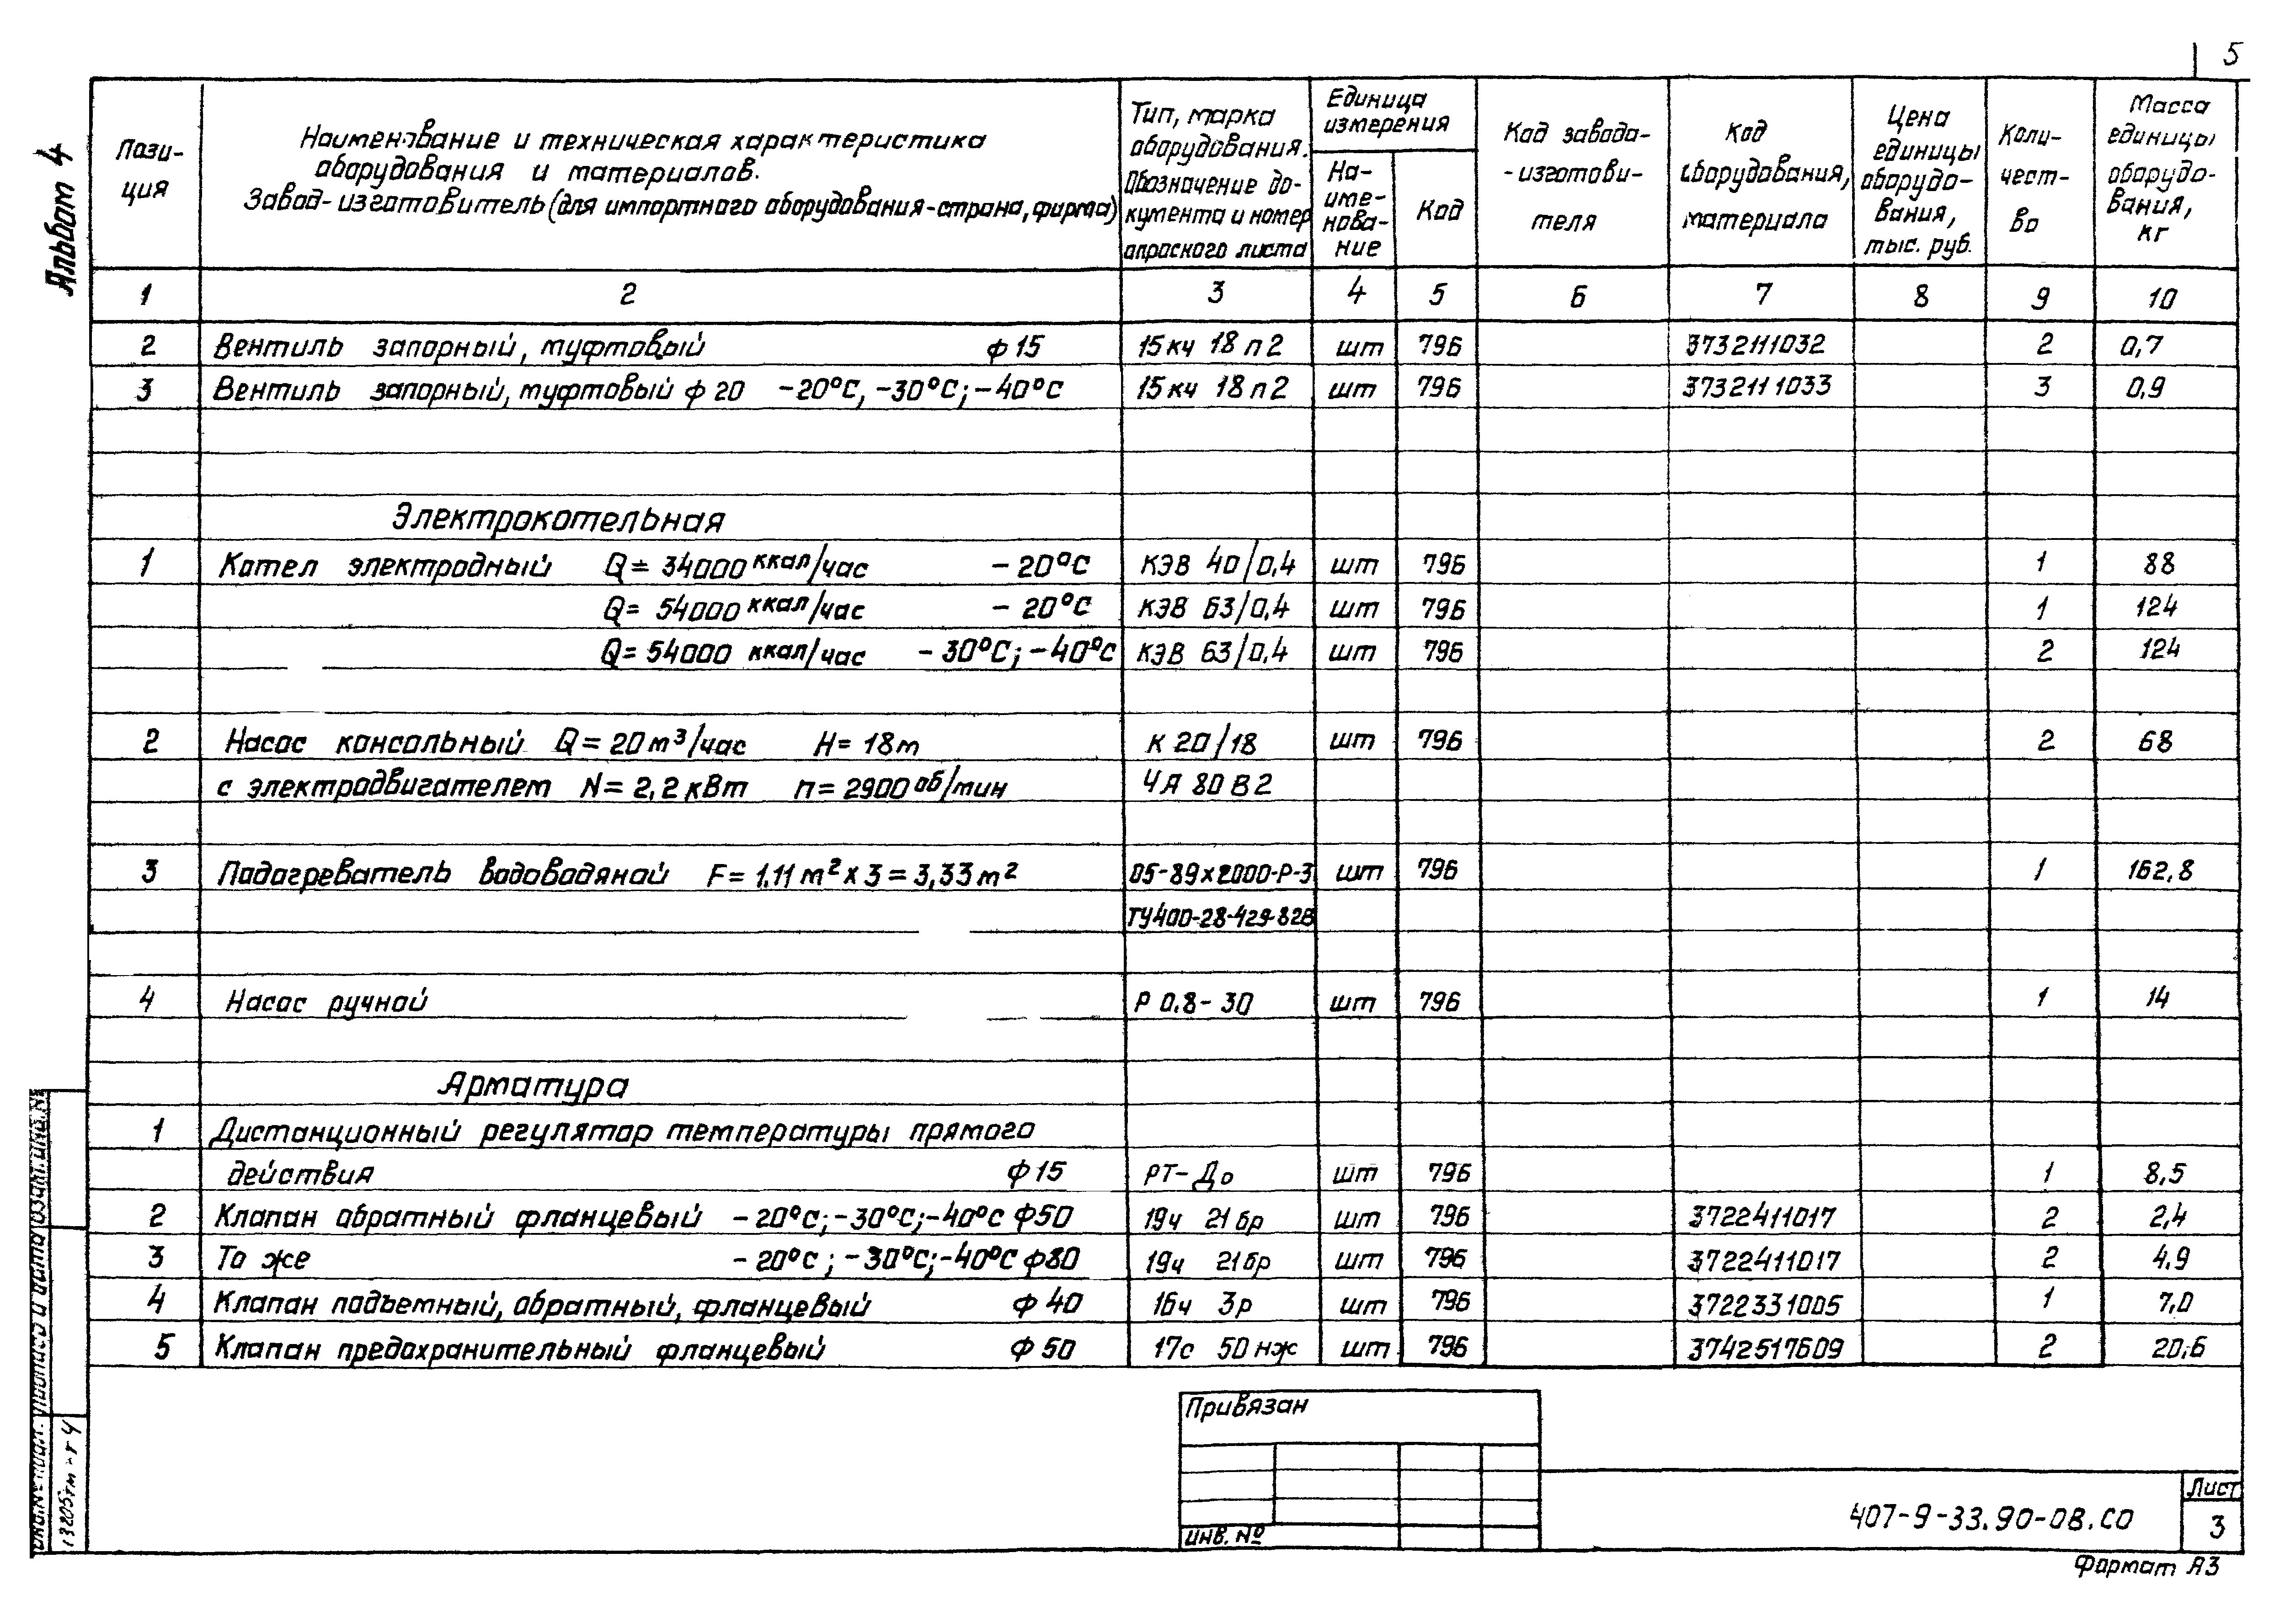 5
Альбом 4
Пози-
ция
Наименование и техническая характеристика
оборудования и материалов.
Завод-изготовитель (для импортного оборудования-страна, фирма)
Тип, марка
оборудования.
Обозначение до-
кумента и номер
опросного листа
Единица
измерения
На-
име-
нова-
ние
Код
Код завода-
-изготови-
теля
Код
оборудования,
материала
Цена
единицы
оборудо-
вания,
тыс. руб.
Коли-
чест-
во
Масса
единицы
оборудо-
вания,
кг
1 2 3 4 5 6 7 8 9 10
2 Вентиль запорный, муфтовый ф 15 15кч 18п2 шт 796 3732111032 2 0,7
3 Вентиль запорный, муфтовый ф 20 -20°С, -30°С; -40°С 15кч 18п2 шт 796 3732111033 3 0,9
Электрокотельная
1 Котел электродный Q= 34000 ккал/час -20°С КЭВ 40/0,4 шт 796 1 88
Q= 54000 ккал/час -20°С КЭВ 63/0,4 шт 796 1 124
Q= 54000 ккал/час -30°С; -40°С КЭВ 63/0,4 шт 796 2 124
2 Насос консольный Q= 20м³/час H= 18м К 20/18 шт 796 2 68
с электродвигателем N= 2,2 кВт n= 2900 об/мин 4А 80В2
3 Подогреватель водоводяной F= 1.11 м² х 3 = 3,33 м² 05-89х2000-Р-3 шт 796 1 162,8
ТУ400-28-429-82Е
4 Насос ручной Р 0.8-30 шт 796 1 14
Арматура
1 Дистанционный регулятор температуры прямого
действия ф 15 РТ-До шт 796 1 8,5
2 Клапан обратный фланцевый -20°С; -30°С; -40°С ф50 19ч 21бр шт 796 3722411017 2 2,4
3 То же -20°С; -30°С; -40°С ф80 19ч 21бр шт 796 3722411017 2 4,9
4 Клапан подъемный, обратный, фланцевый ф 40 16ч 3р шт 796 3722331005 1 7,0
5 Клапан предохранительный фланцевый ф 50 17с 50нж шт 796 3742517609 2 20,6
Привязан
Инв. №
407-9-33.90-ОВ.СО
Лист
3
Формат А3
Инв.№ подл. Подпись и дата Взам. инв. №
13205тм-т4